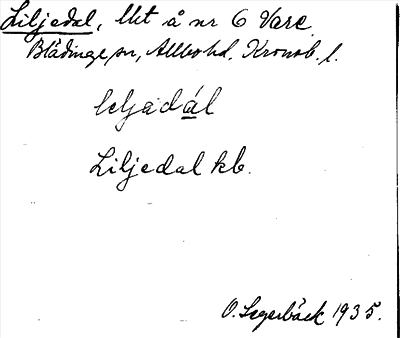 Liljedal, lht å nr 6 Vare
Blädinge sn, Allbo hd, Kronob. l.
lɩljadál
Liljedal kb.
O. Lagerbäck 1935.